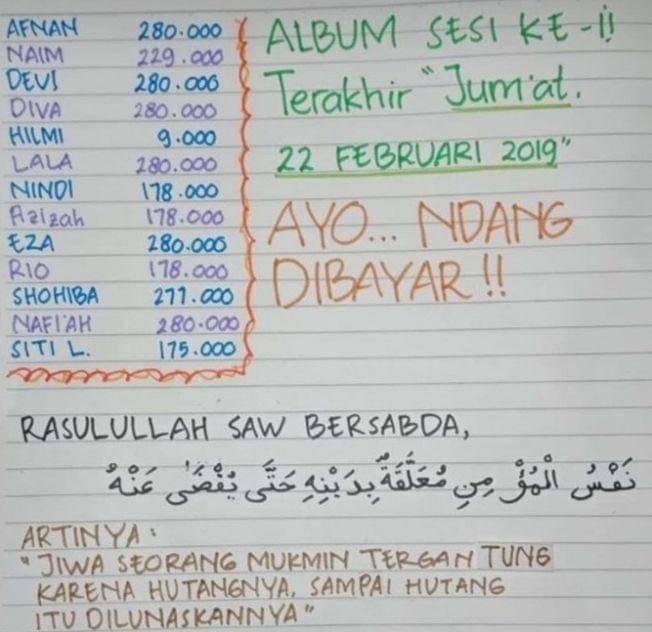 AFNAN 280.000
NAIM 229.000
DEVI 280.000
DIVA 280.000
HILMI 9.000
LALA 280.000
NINDI 178.000
Azizah 178.000
EZA 280.000
RIO 178.000
SHOHIBA 277.000
NAFI'AH 280.000
SITI L. 175.000
ALBUM SESI KE-1!!
Terakhir "Jum'at.
22 FEBRUARI 2019"
AYO... NDANG
DIBAYAR !!
RASULULLAH SAW BERSABDA,
نَفْسُ الْمُؤْ مِنِ مُعَلَّقَةٌ بِدَيْنِهِ حَتَّى يُقْضَى عَنْهُ
ARTINYA :
"JIWA SEORANG MUKMIN TERGANTUNG
KARENA HUTANGNYA, SAMPAI HUTANG
ITU DILUNASKANNYA"